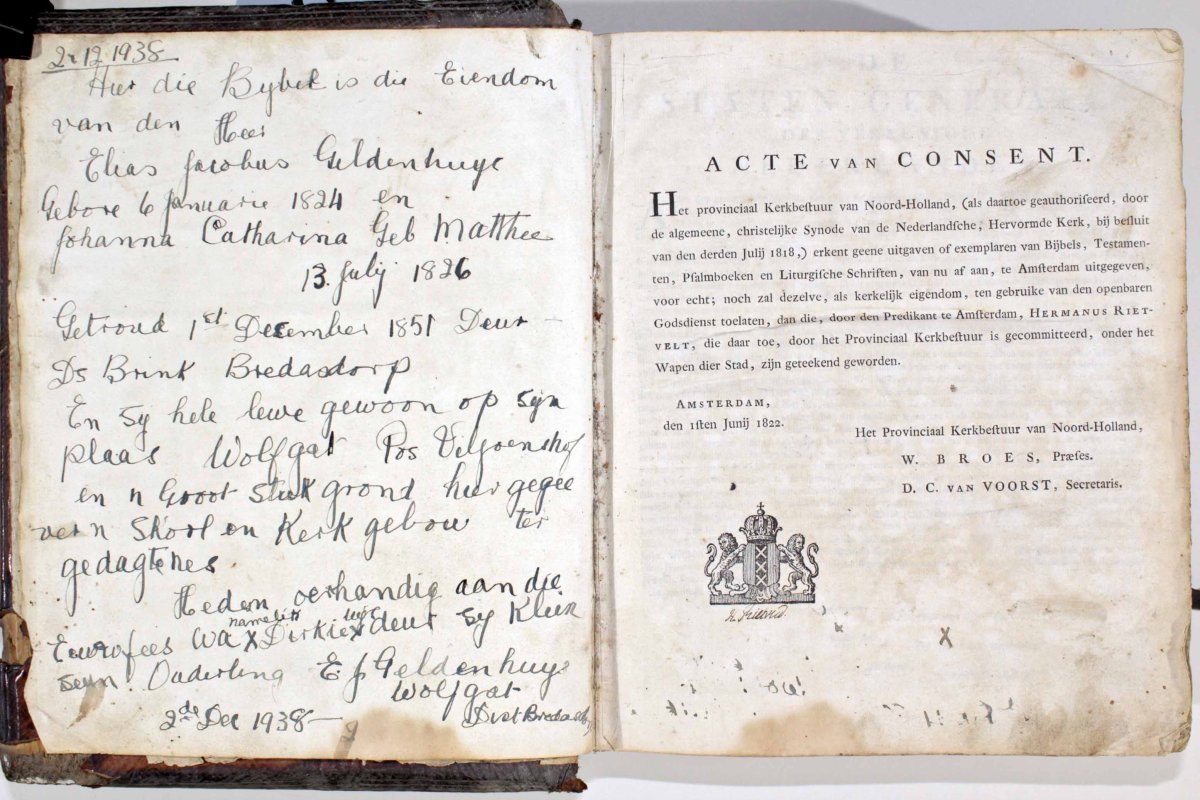 2-12 1938
Hier die Bybel is die Eiendom
van den Heer
Elias Jacobus Geldenhuys
Gebore 6 Januarie 1824 en
Johanna Catharina Geb Matthee
13 Julij 1826
Getroud 1st December 1851 Deur
Ds Brink Bredasdorp
En sy hele lewe gewoon op syn
plaas Wolfgat Pos Viljoenshof
en n Groot stuk grond hier gegee
ver n Skool en Kerk gebou ter
gedagtenes
Heden oerhandig aan die
Eeuwfees wa namelik Dirkie deur sy Klein
seun Ouderling E J Geldenhuys
Wolfgat
2de Dec 1938 — Dist Bredasdorp
ACTE VAN CONSENT.
Het provinciaal Kerkbeſtuur van Noord-Holland, (als daartoe geauthoriſeerd, door
de algemeene, christelijke Synode van de Nederlandſche, Hervormde Kerk, bij beſluit
van den derden Julij 1818,) erkent geene uitgaven of exemplaren van Bijbels, Testamen-
ten, Pſalmboeken en Liturgiſche Schriften, van nu af aan, te Amſterdam uitgegeven,
voor echt; noch zal dezelve, als kerkelijk eigendom, ten gebruike van den openbaren
Godsdienst toelaten, dan die, door den Predikant te Amſterdam, HERMANUS RIET-
VELT, die daar toe, door het Provinciaal Kerkbeſtuur is gecommitteerd, onder het
Wapen dier Stad, zijn geteekend geworden.
AMSTERDAM,
den 1ſten Junij 1822.
Het Provinciaal Kerkbeſtuur van Noord-Holland,
W. BROES, Præſes.
D. C. VAN VOORST, Secretaris.